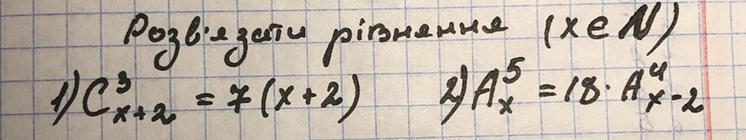 Розв'язати рівняння (x∈N)
1) C³ₓ₊₂ = 7(x+2) 2) A⁵ₓ = 18· A⁴ₓ₋₂